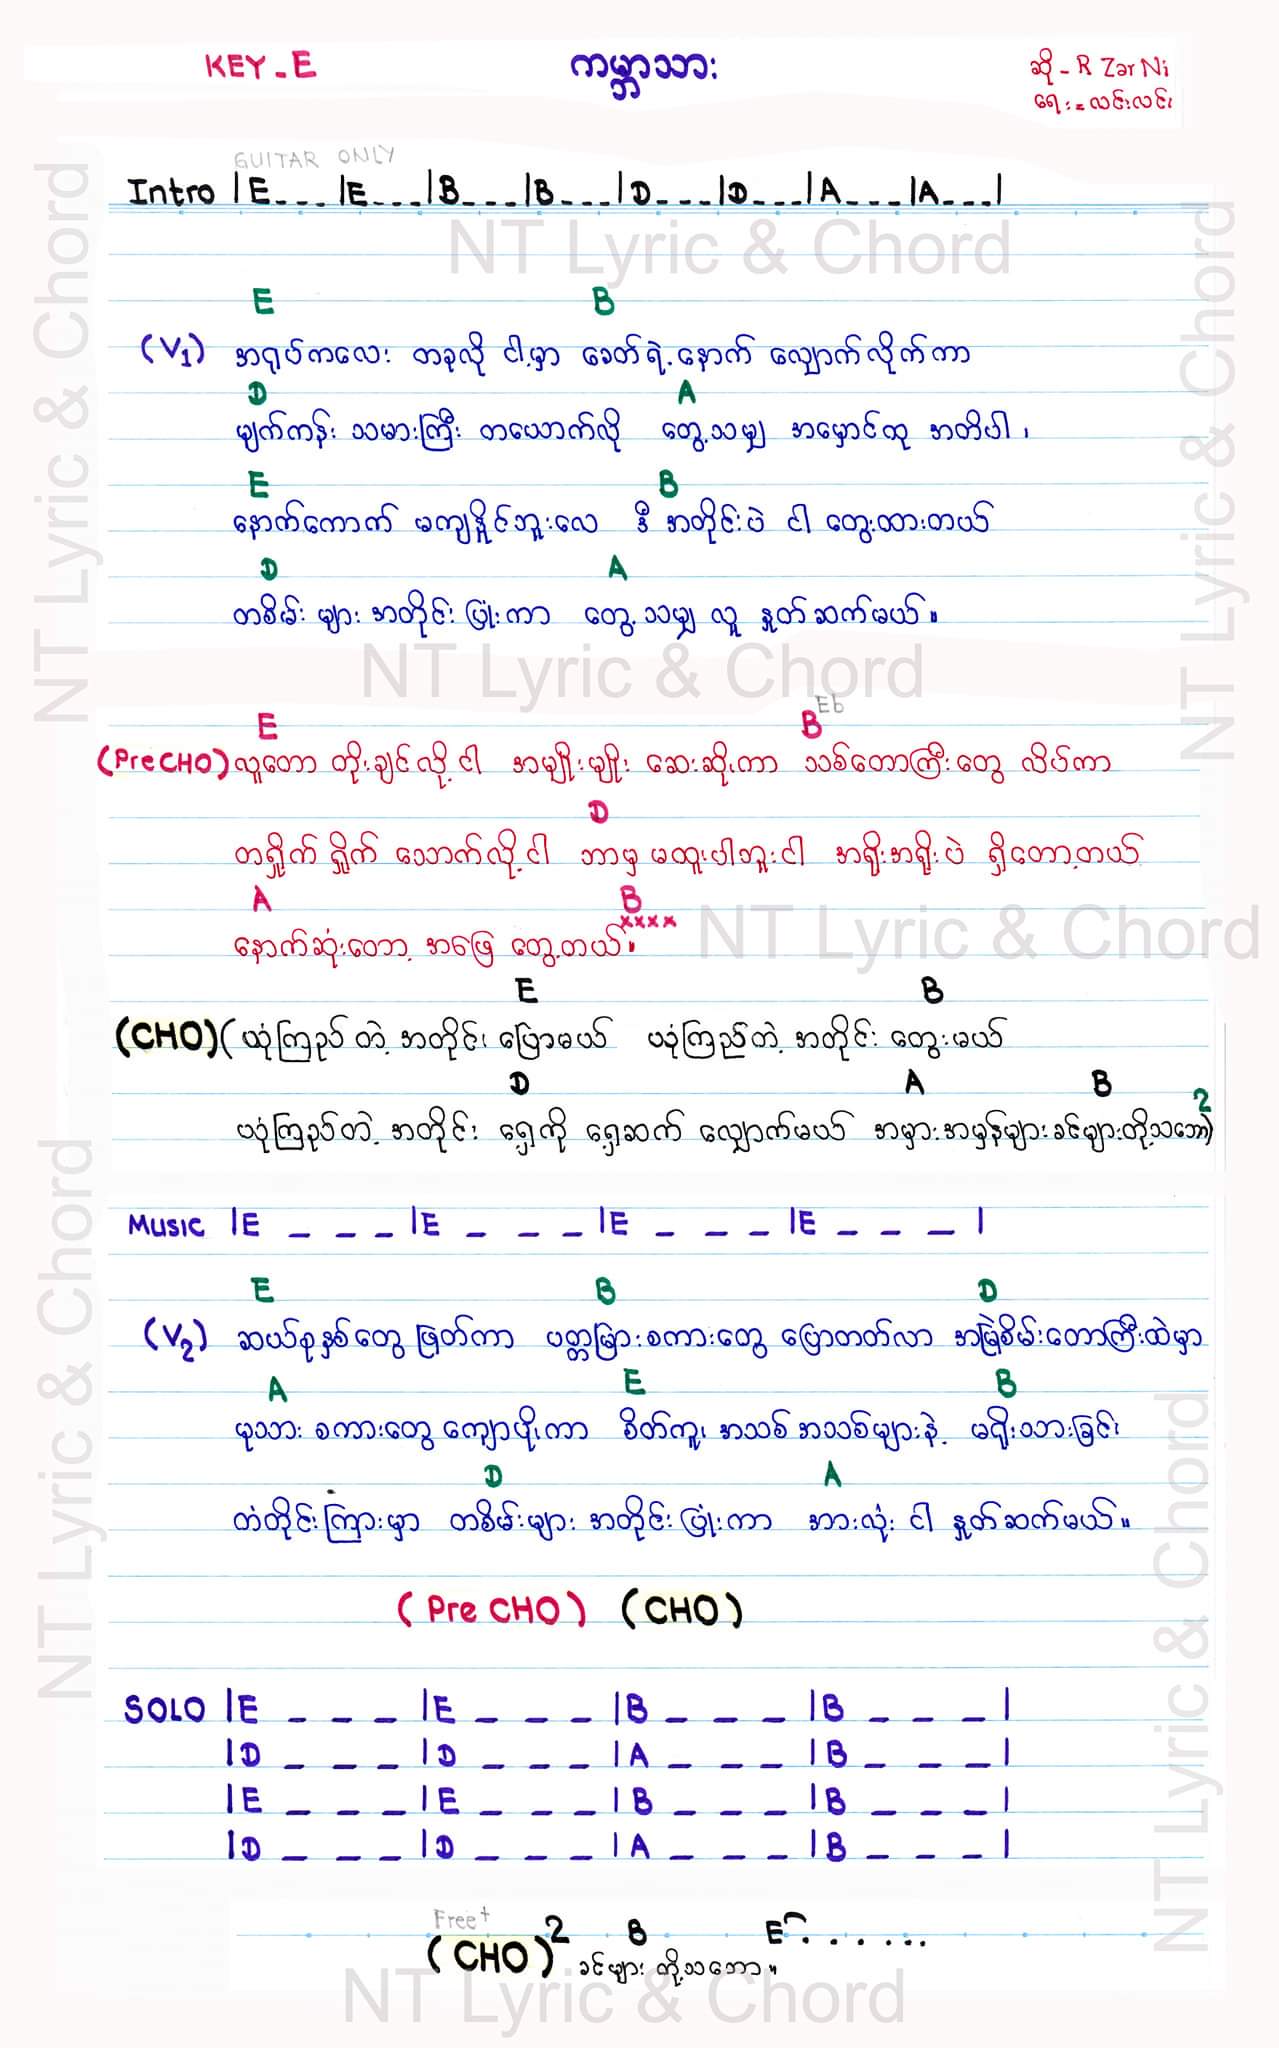 KEY - E
ကမ္ဘာသား
ဆို - R Zar Ni
ရေး = လင်းလင်း
GUITAR ONLY
Intro |E _ _ _ |E _ _ _ |B _ _ _ |B _ _ _ |D _ _ _ |D _ _ _ |A _ _ _ |A _ _ _ |
NT Lyric & Chord
E B
(V1) အရုပ်ကလေး တခုလို ငါ့မှာ ခေတ်ရဲ့နောက် လျှောက်လိုက်ကာ
D A
မျက်ကန်း သမားကြီး တယောက်လို တွေ့သမျှ အမှောင်ထု အတိပါ၊
E B
နောက်ကောက် မကျနိူင်ဘူးလေ ဒီ အတိုင်းပဲ ငါ တွေးထားတယ်
D A
တစိမ်း များ အတိုင်း ပြုံးကာ တွေ့သမျှ လူ နှုတ်ဆက်မယ်။
NT Lyric & Chord
E B Eb
(Pre CHO) လူတော တိုးချင်လို့ ငါ အမျိုးမျိုး ဆေးဆိုးကာ သစ်တောကြီးတွေ လိပ်ကာ
D
တရှိူက်ရှိူက် သောက်လို့ ငါ ဘာမှ မထူးပါဘူး ငါ အရိုးအရိုးပဲ ရှိတော့တယ်
A B
x x x x
နောက်ဆုံးတော့ အဖြေ တွေ့တယ်။
NT Lyric & Chord
E B
(CHO) (ယုံကြည်တဲ့ အတိုင်း ပြောမယ် ယုံကြည်တဲ့ အတိုင်း တွေးမယ်
D A B
ယုံကြည်တဲ့ အတိုင်း ရှေ့ကို ရှေ့ဆက် လျှောက်မယ် အမှားအမှန်များ ခင်များတို့သဘော)2
Music |E _ _ _ |E _ _ _ |E _ _ _ |E _ _ _ |
E B D
(V2) ဆယ်စုနှစ်တွေ ဖြတ်ကာ ပတ္တမြားစကားတွေ ပြောတတ်လာ အမြဲစိမ်းတောကြီးထဲမှာ
A E B
မုသား စကားတွေ ကျောပိုးကာ စိတ်ကူး အသစ် အသစ်များနဲ့ မရိုးသားခြင်း
D A
တံတိုင်းကြားမှာ တစိမ်းများ အတိုင်းပြုံးကာ အားလုံး ငါ နှုတ်ဆက်မယ်။
(Pre CHO) (CHO)
SOLO |E _ _ _ |E _ _ _ |B _ _ _ |B _ _ _ |
|D _ _ _ |D _ _ _ |A _ _ _ |B _ _ _ |
|E _ _ _ |E _ _ _ |B _ _ _ |B _ _ _ |
|D _ _ _ |D _ _ _ |A _ _ _ |B _ _ _ |
Free+
(CHO)2 B E . . . . . .
ခင်များ တို့သဘော။
NT Lyric & Chord
NT Lyric & Chord
NT Lyric & Chord
NT Lyric & Chord
NT Lyric & Chord